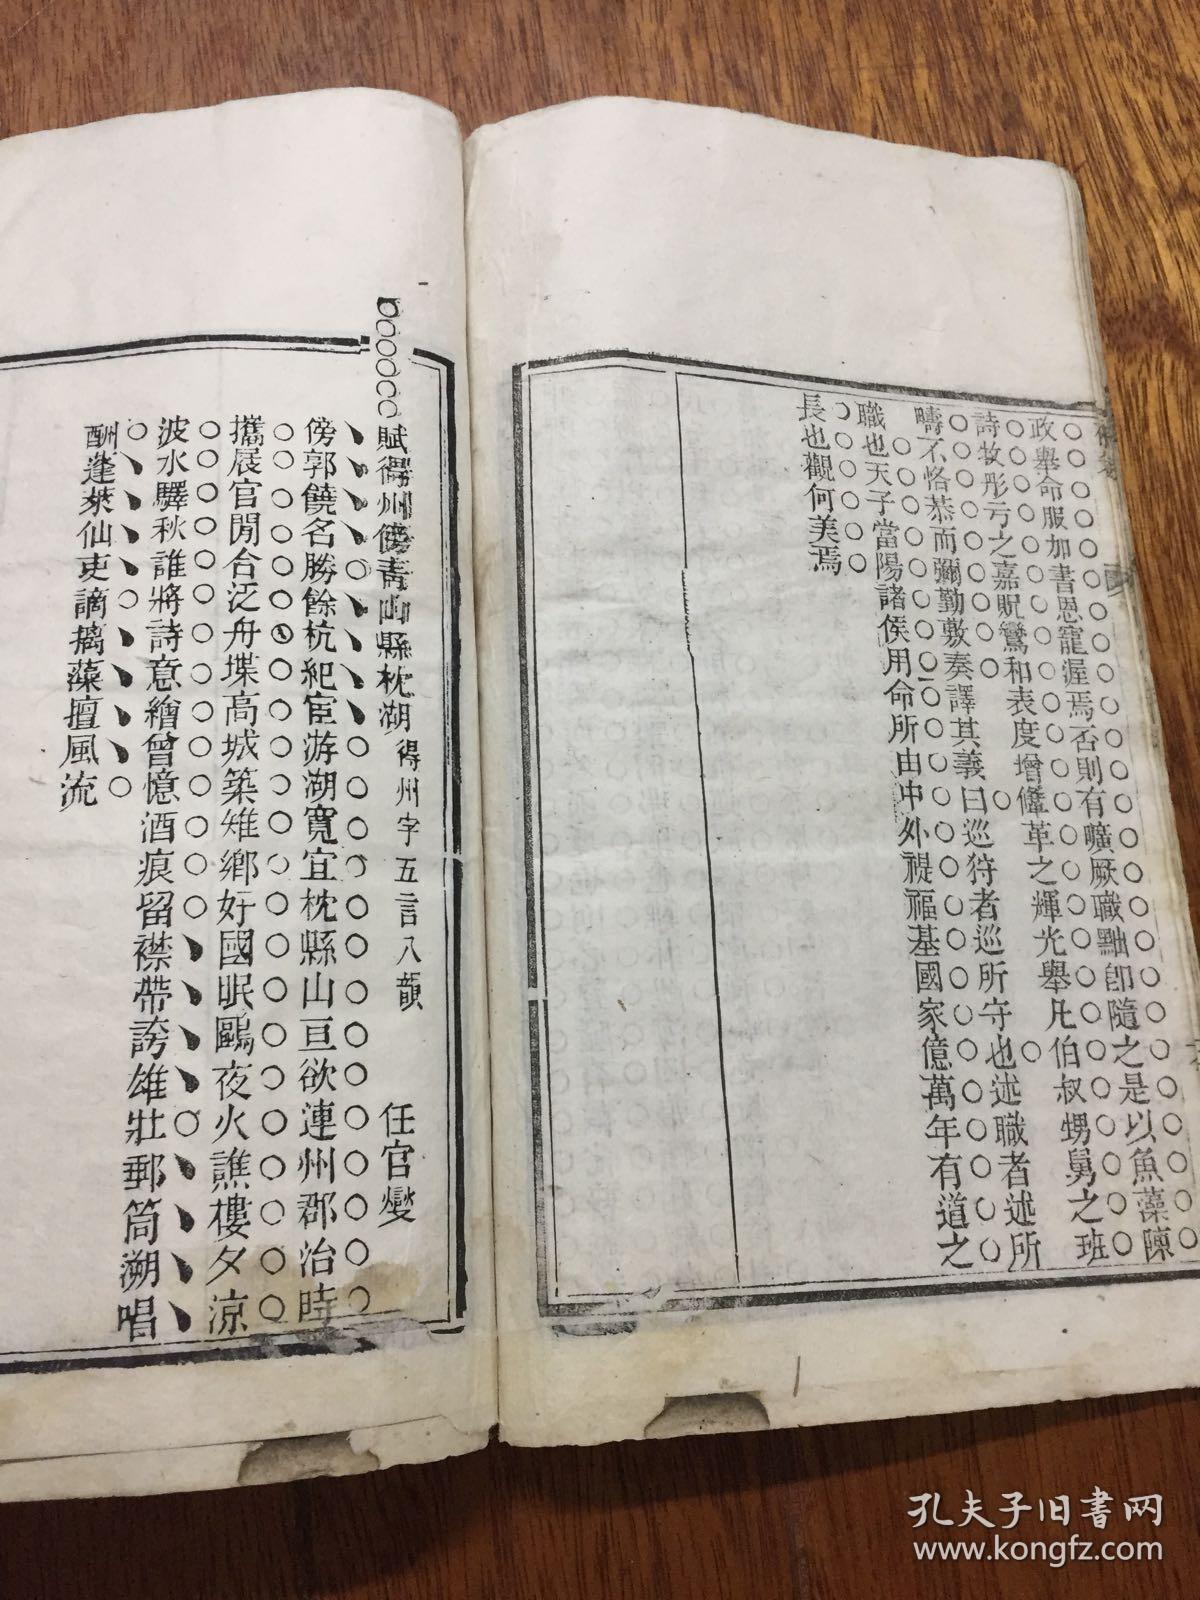 政舉命服加書恩寵渥焉否則有曠厥職黜卽隨之是以魚藻陳
詩攷彤弓之嘉貺鸞和表度增鞗革之輝光舉凡伯叔甥舅之班
疇不恪恭而彌勤敷奏譯其義曰巡狩者巡所守也述職者述所
職也天子當陽諸侯用命所由中外禔福基國家億萬年有道之
長也觀何美焉
賦得州傍青山縣枕湖得州字五言八韻 任官燮
傍郭饒名勝餘杭紀宦游湖寬宜枕縣山亘欲連州郡治時
攜展官閒合泛舟堞高城築雉鄉好國眠鷗夜火譙樓夕涼
波水驛秋誰將詩意繪曾憶酒痕留襟帶誇雄壯郵筒溯唱
酬蓬萊仙吏謫摛藻擅風流
孔夫子旧书网
www.kongfz.com